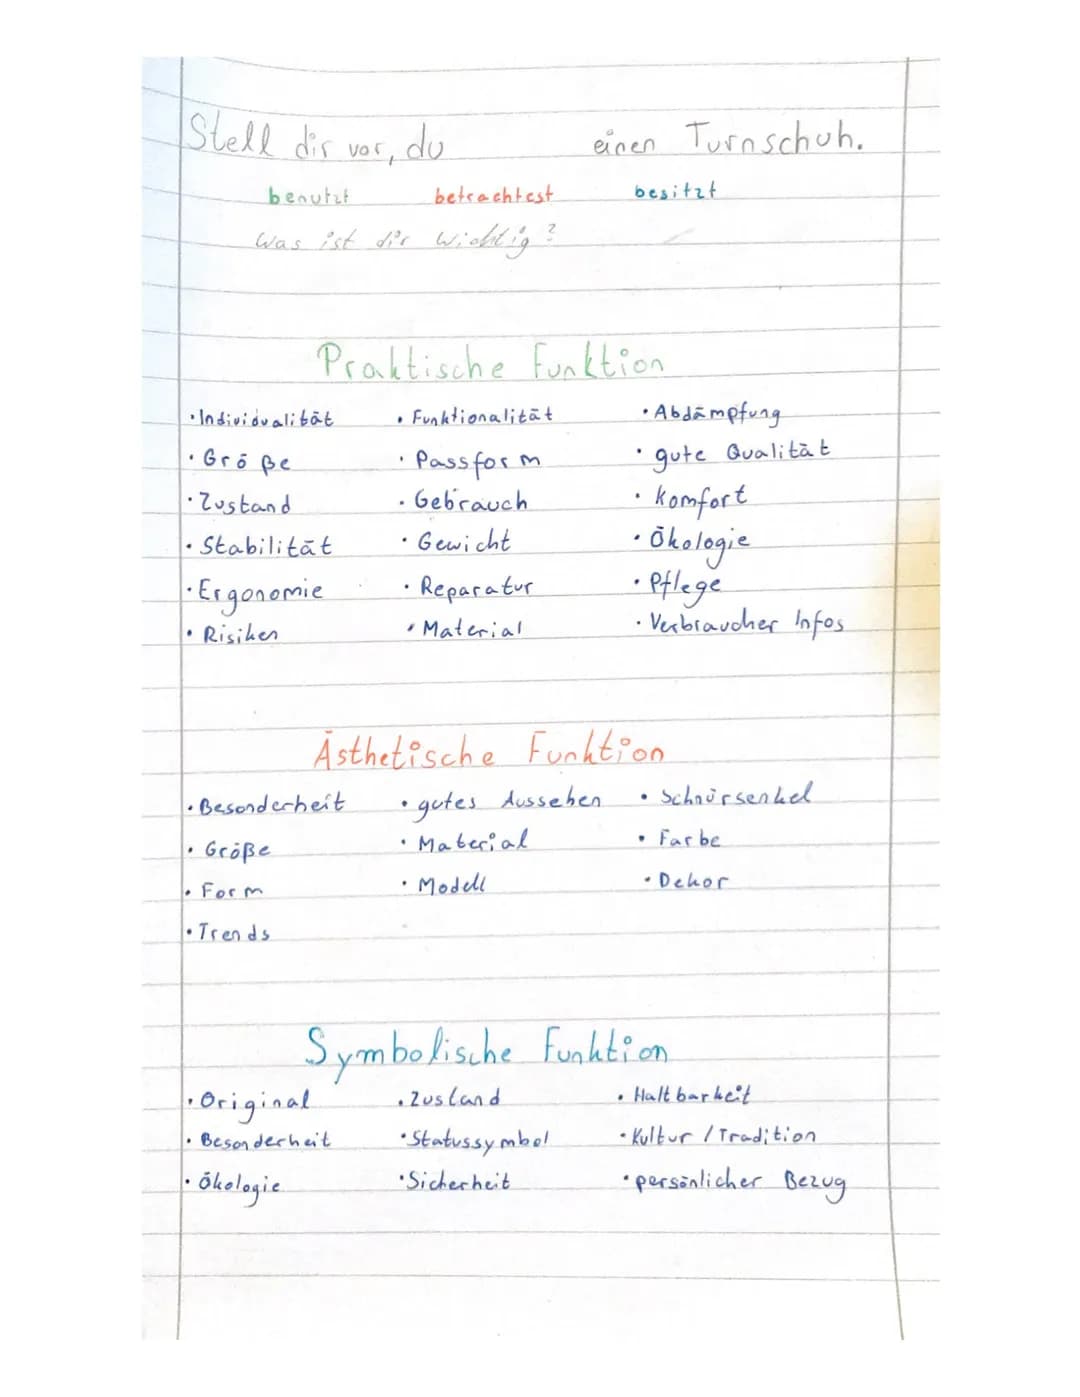 Stell dir vor, du einen Turnschuh.
benutzt betrachtest besitzt
Was ist dir wichtig?
Praktische Funktion
• Individualität • Funktionalität • Abdämpfung
• Größe • Passform • gute Qualität
• Zustand • Gebrauch • Komfort
• Stabilität • Gewicht • Ökologie
• Ergonomie • Reparatur • Pflege
• Risiken • Material • Verbraucher Infos
Ästhetische Funktion
• Besonderheit • gutes Aussehen • Schnürsenkel
• Größe • Material • Farbe
• Form • Modell • Dekor
• Trends
Symbolische Funktion
• Original • Zustand • Haltbarkeit
• Besonderheit • Statussymbol • Kultur / Tradition
• Ökologie • Sicherheit • persönlicher Bezug